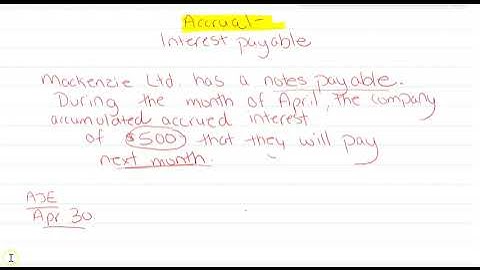 Accrual-
Interest payable
Mackenzie Ltd. has a notes payable.
During the month of April, the company
accumulated accrued interest
of $500 that they will pay
next month.
AJE
Apr 30